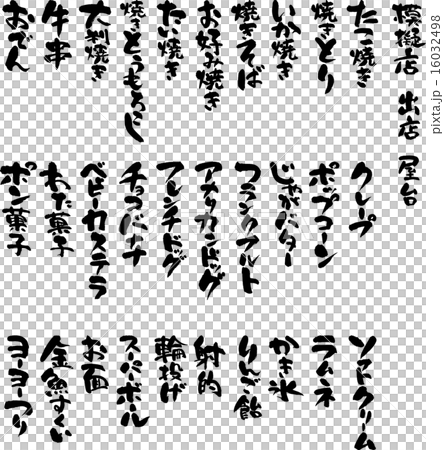 模擬店 出店 屋台
たこ焼き
焼きとり
いか焼き
焼きそば
お好み焼き
たい焼き
焼きとうもろこし
大判焼き
牛串
おでん
クレープ
ポップコーン
じゃがバター
フランクフルト
アメリカンドッグ
フレンチドッグ
チョコバナナ
ベビーカステラ
わた菓子
ポン菓子
ソフトクリーム
ラムネ
かき氷
りんご飴
射的
輪投げ
スーパーボール
お面
金魚すくい
ヨーヨーつり
pixta.jp - 16032498